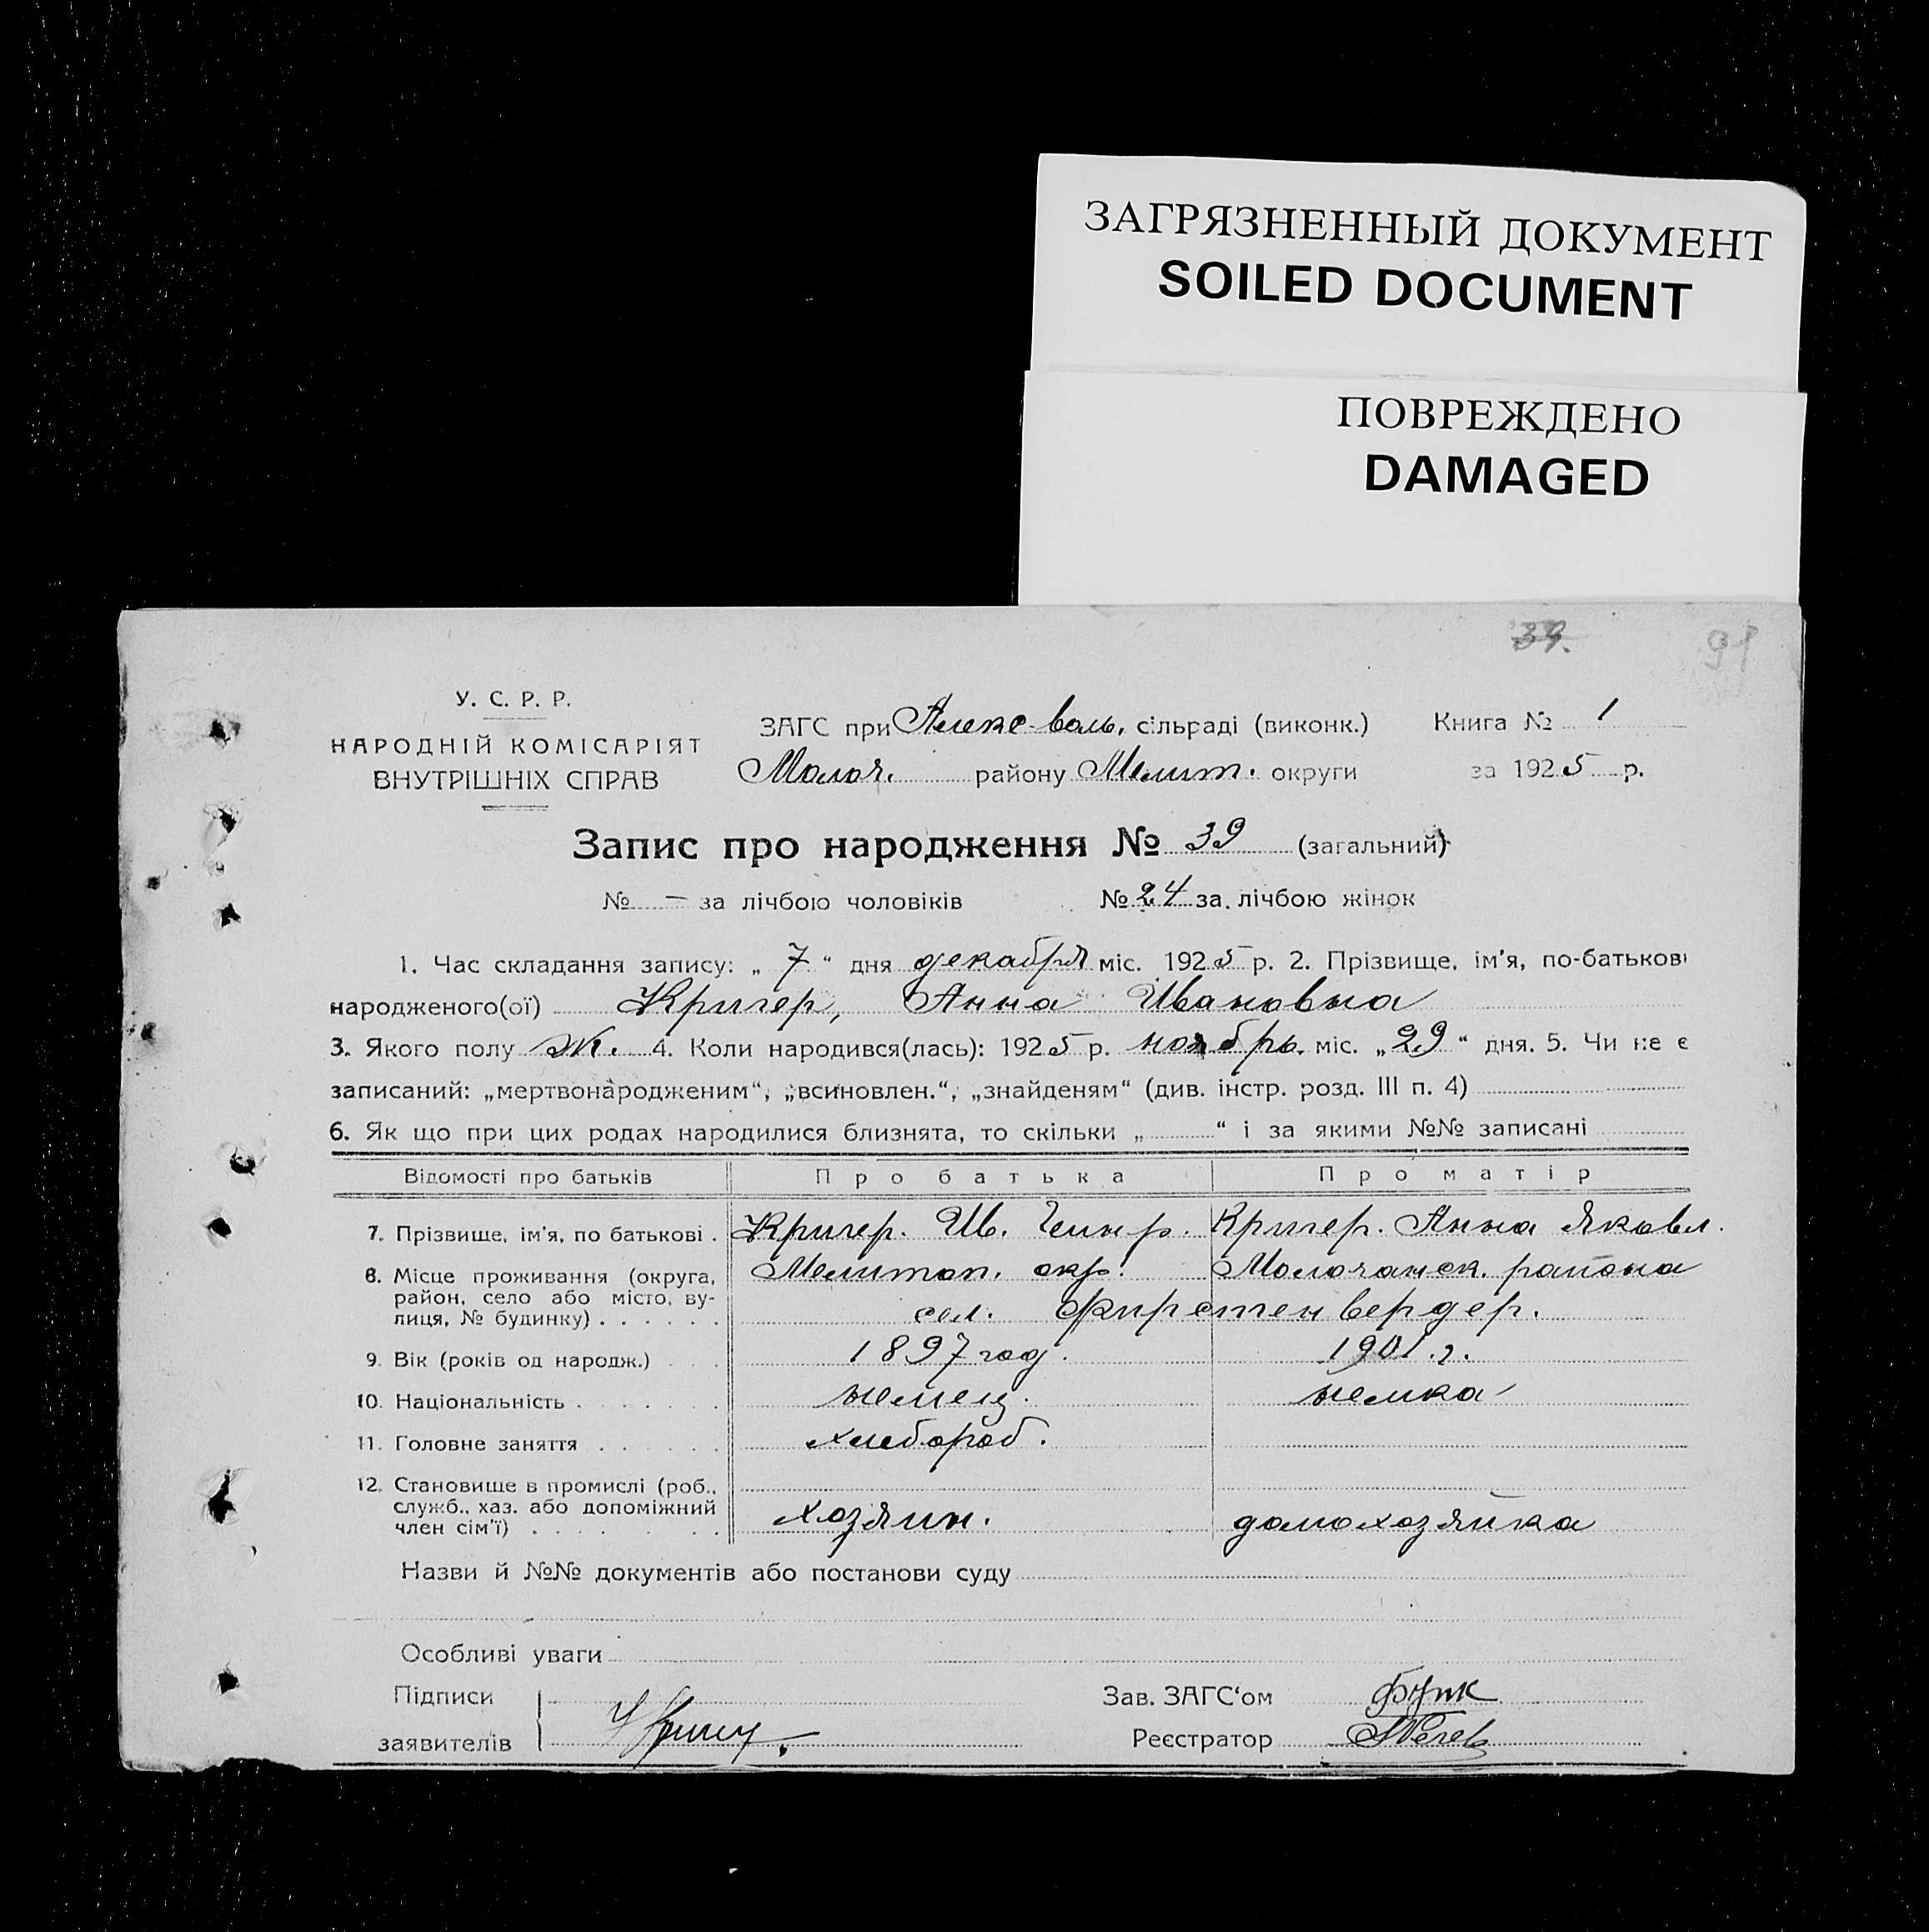 ЗАГРЯЗНЕННЫЙ ДОКУМЕНТ
SOILED DOCUMENT
ПОВРЕЖДЕНО
DAMAGED
39.
91
У. С. Р. Р.
НАРОДНІЙ КОМІСАРІЯТ
ВНУТРІШНІХ СПРАВ
ЗАГС при Алекс-валь. сільраді (виконк.) Книга № 1
Молоч. району Мелит. округи за 1925 р.
Запис про народження № 39 (загальний)
№ — за лічбою чоловіків № 24 за лічбою жінок
1. Час складання запису: „ 7 “ дня декабря міс. 1925 р. 2. Прізвище, ім'я, по-батькові
народженого(ої) Кригер, Анна Ивановна
3. Якого полу ж. 4. Коли народився(лась): 1925 р. ноябрь. міс. „29“ дня. 5. Чи не є
записаний: „мертвонародженим“, „всиновлен.“, „знайденям“ (див. інстр. розд. III п. 4)
6. Як що при цих родах народилися близнята, то скільки „ “ і за якими №№ записані
Відомості про батьків Про батька Про матір
7. Прізвище, ім'я, по батькові . Кригер. Ив. Генр. Кригер. Анна Яковл.
8. Місце проживання (округа, Мелитоп. окр. Молочанск. района
район, село або місто, ву-
лиця, № будинку) . . . . . . сел. Фирстенвердер.
9. Вік (років од народж.) . . 1897 год. 1901 г.
10. Національність . . . . . . . немец. немка
11. Головне заняття . . . . . . хлебороб.
12. Становище в промислі (роб.,
служб., хаз. або допоміжний
член сім'ї) . . . . . . хозяин. домохозяйка
Назви й №№ документів або постанови суду
Особливі уваги
Підписи Зав. ЗАГС‘ом
заявителів Реєстратор